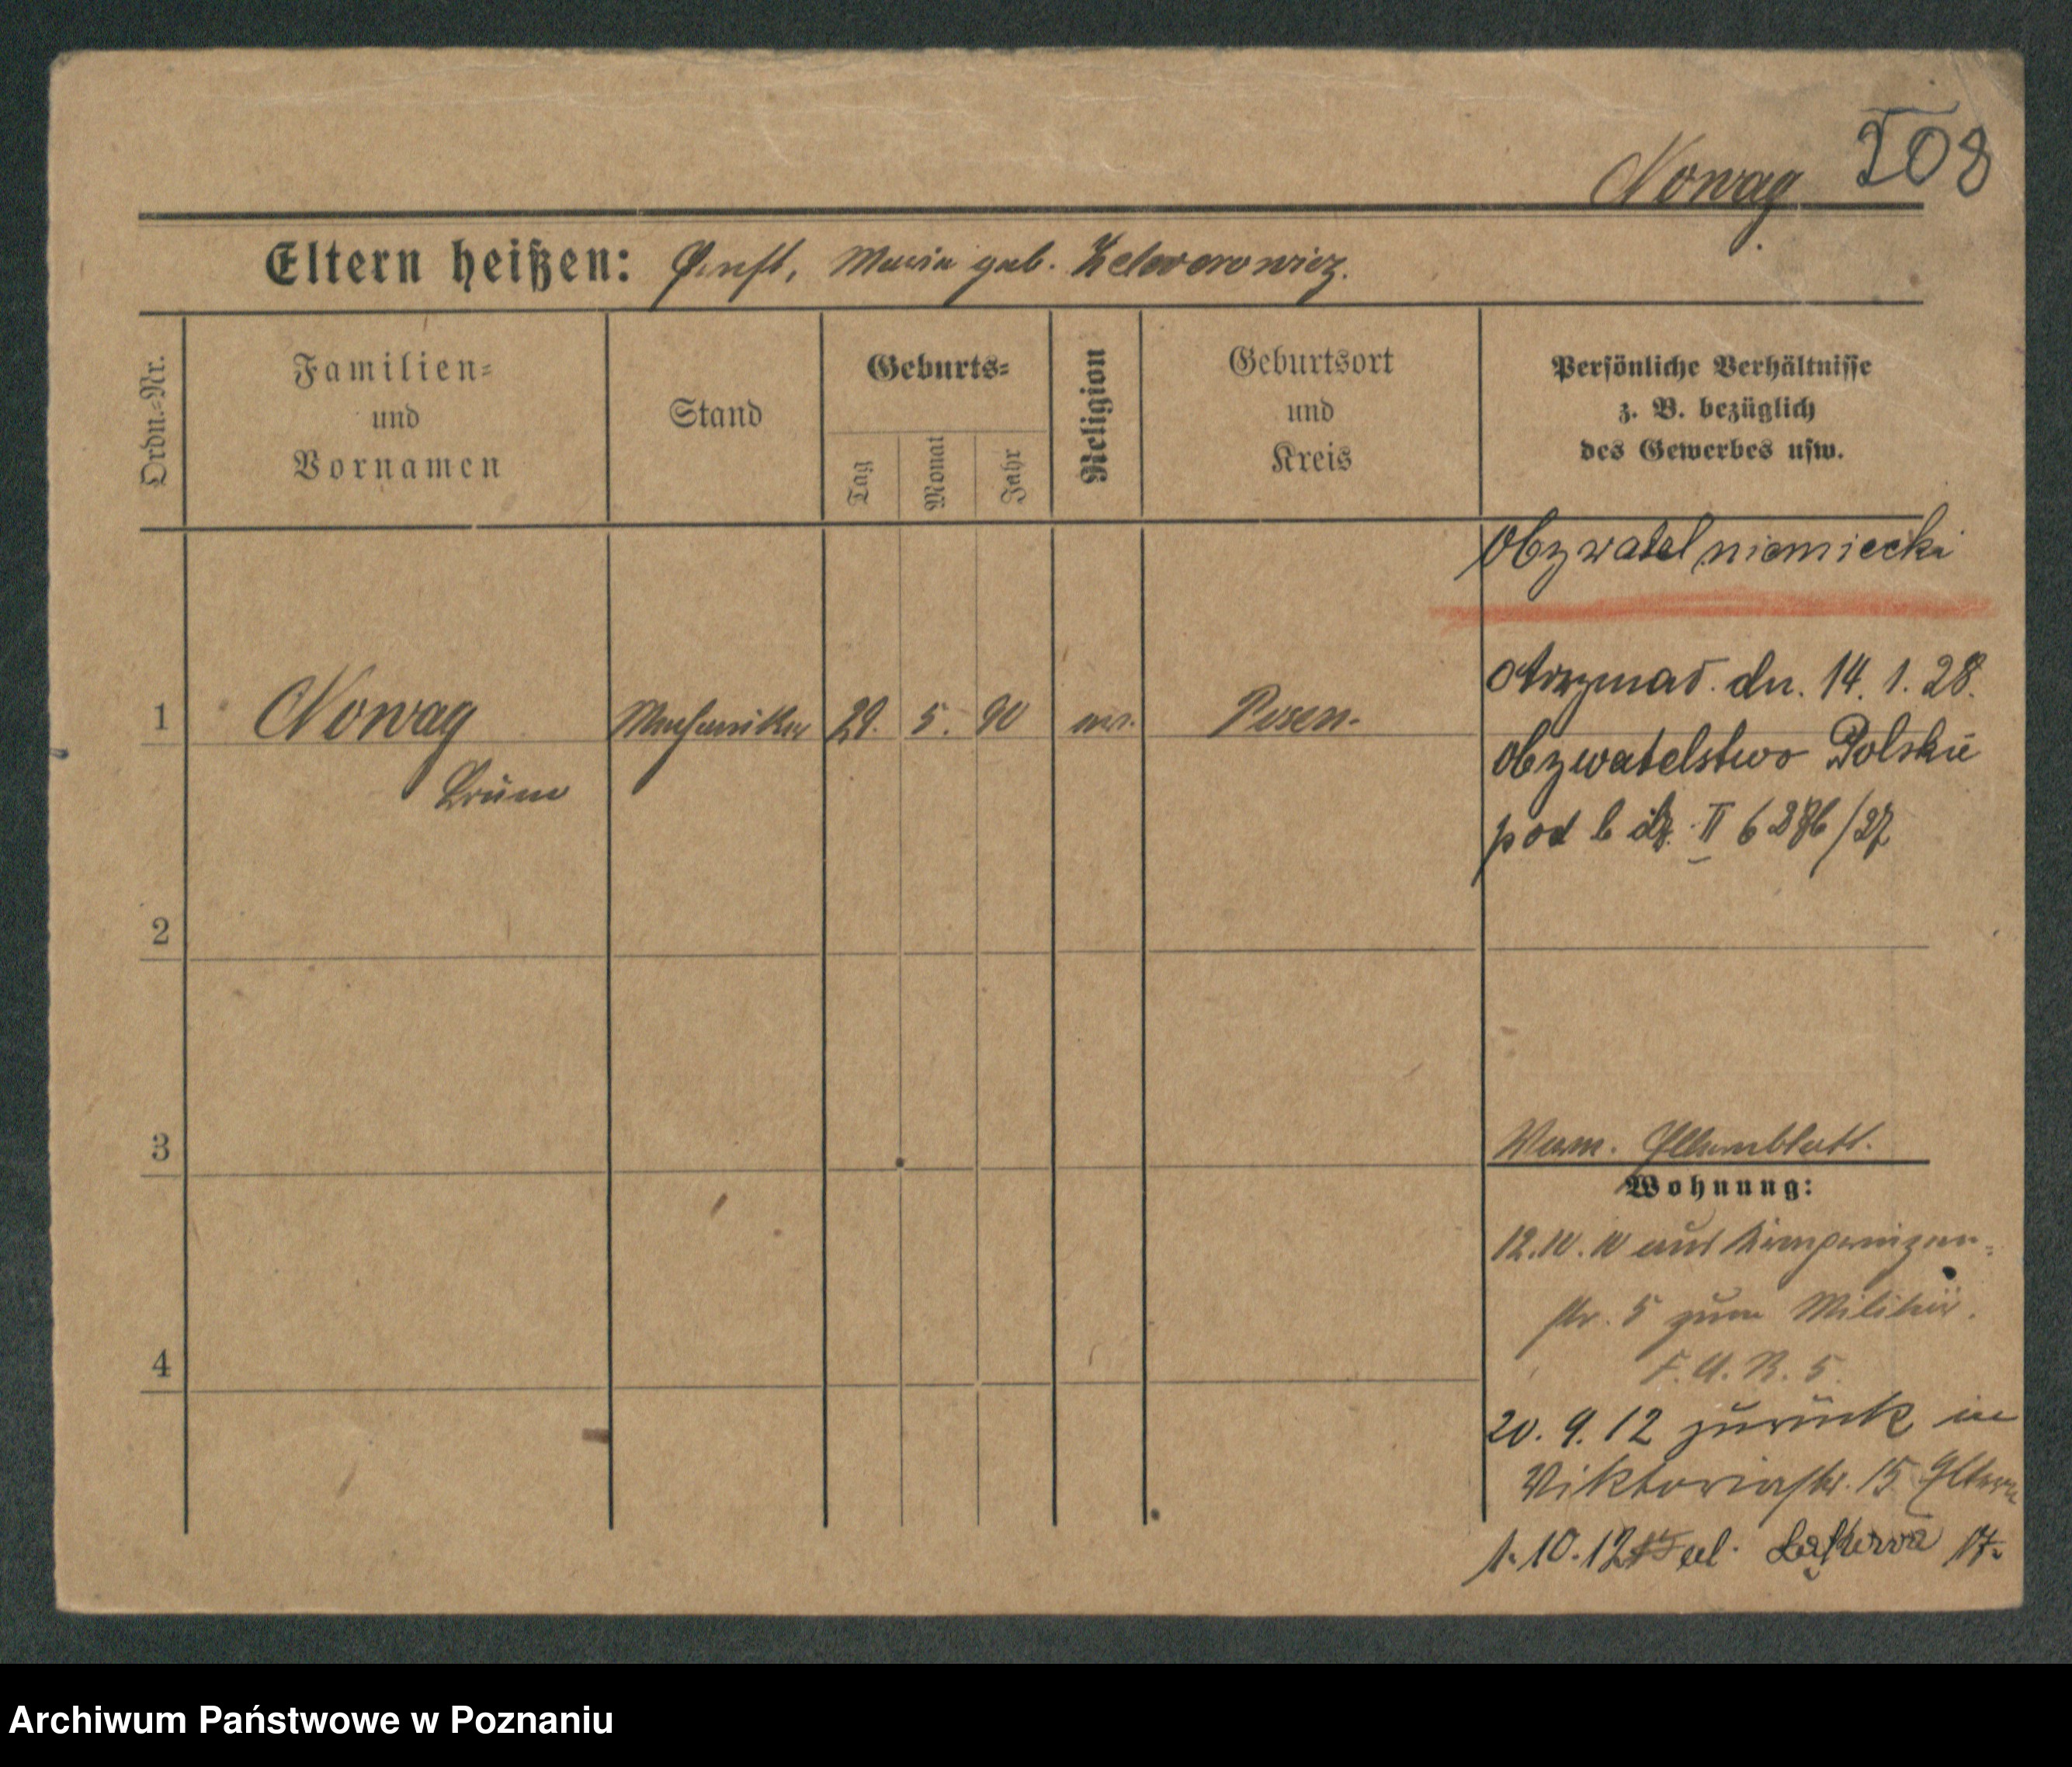 Nowag 208
Eltern heißen: Ernst, Maria geb.
Ordn.-Nr.
Familien-
und
Vornamen
Stand
Geburts-
Tag
Monat
Jahr
Religion
Geburtsort
und
Kreis
Persönliche Verhältnisse
z. B. bezüglich
des Gewerbes usw.
Obywatel niemiecki
1 Nowag Mechaniker 29. 5. 90 Posen.
Bruno
otrzymał dn. 14. 1. 28.
obywatelstwo Polskie
pod l dz. II 6286/27
2
3
Elternblatt.
Wohnung:
12.10.10 aus
str. 5 zum Militär.
F.A.R. 5.
4
20. 9. 12 zurück in
Viktoriastr. 15 Eltern
1.10.12 ul. 17.
Archiwum Państwowe w Poznaniu